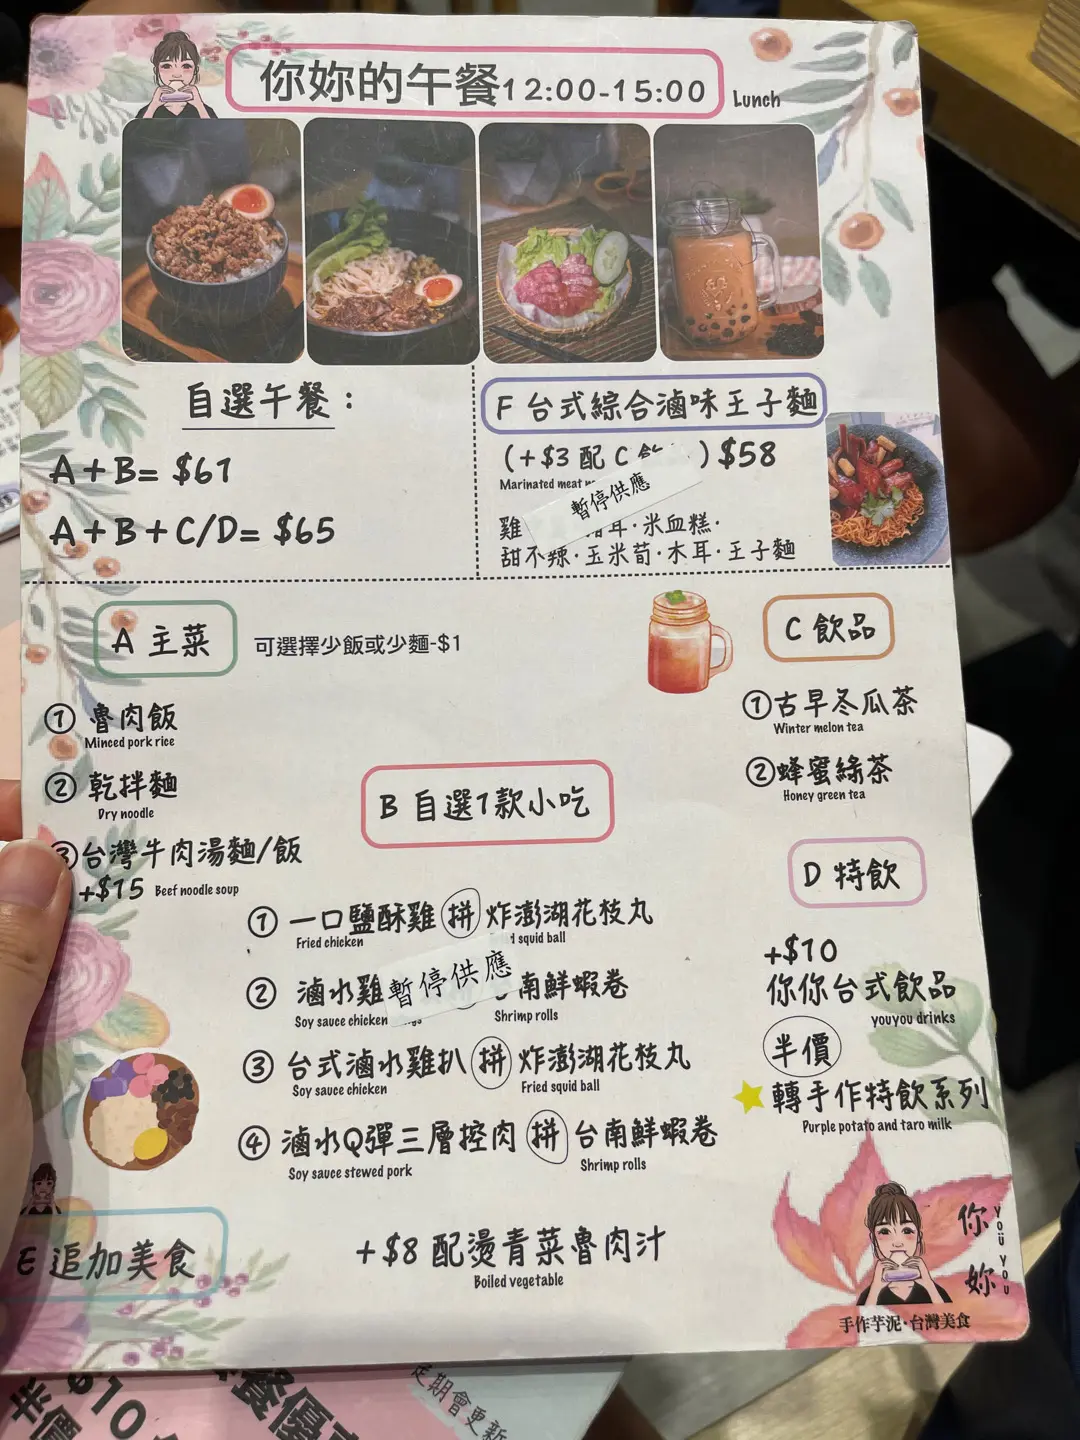 你妳的午餐12:00-15:00 Lunch
自選午餐：
A+B= $61
A+B+C/D= $65
F 台式綜合滷味王子麵
(+$3 配 C ) $58
Marinated meat
暫停供應
雞 豬耳·米血糕·
甜不辣·玉米荀·木耳·王子麵
A 主菜
可選擇少飯或少麵-$1
① 魯肉飯
Minced pork rice
② 乾拌麵
Dry noodle
③台灣牛肉湯麵/飯
+$15 Beef noodle soup
B 自選1款小吃
① 一口鹽酥雞 拼 炸澎湖花枝丸
Fried chicken squid ball
② 滷水雞 暫停供應 南鮮蝦卷
Soy sauce chicken Shrimp rolls
③ 台式滷水雞扒 拼 炸澎湖花枝丸
Soy sauce chicken Fried squid ball
④ 滷水Q彈三層控肉 拼 台南鮮蝦卷
Soy sauce stewed pork Shrimp rolls
C 飲品
①古早冬瓜茶
Winter melon tea
②蜂蜜綠茶
Honey green tea
D 特飲
+$10
你你台式飲品
youyou drinks
半價
轉手作特飲系列
Purple potato and taro milk
E 追加美食
+$8 配燙青菜魯肉汁
Boiled vegetable
你妳
YOÜ YOU
手作芋泥·台灣美食
$10
半價
餐優
定期會更新